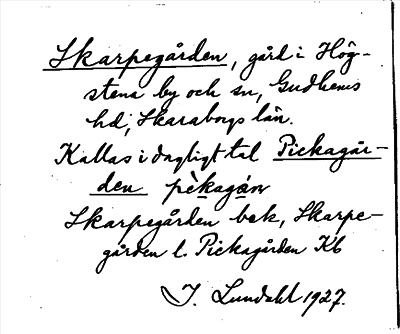 Skarpegården, gård i Hög-
stena by och sn, Gudhems
hd, Skaraborgs län.
Kallas i dagligt tal Pickagår-
den pèkagán
Skarpegården bok, Skarpe-
gården l. Pickagården Kb
J. Lundahl 1927.